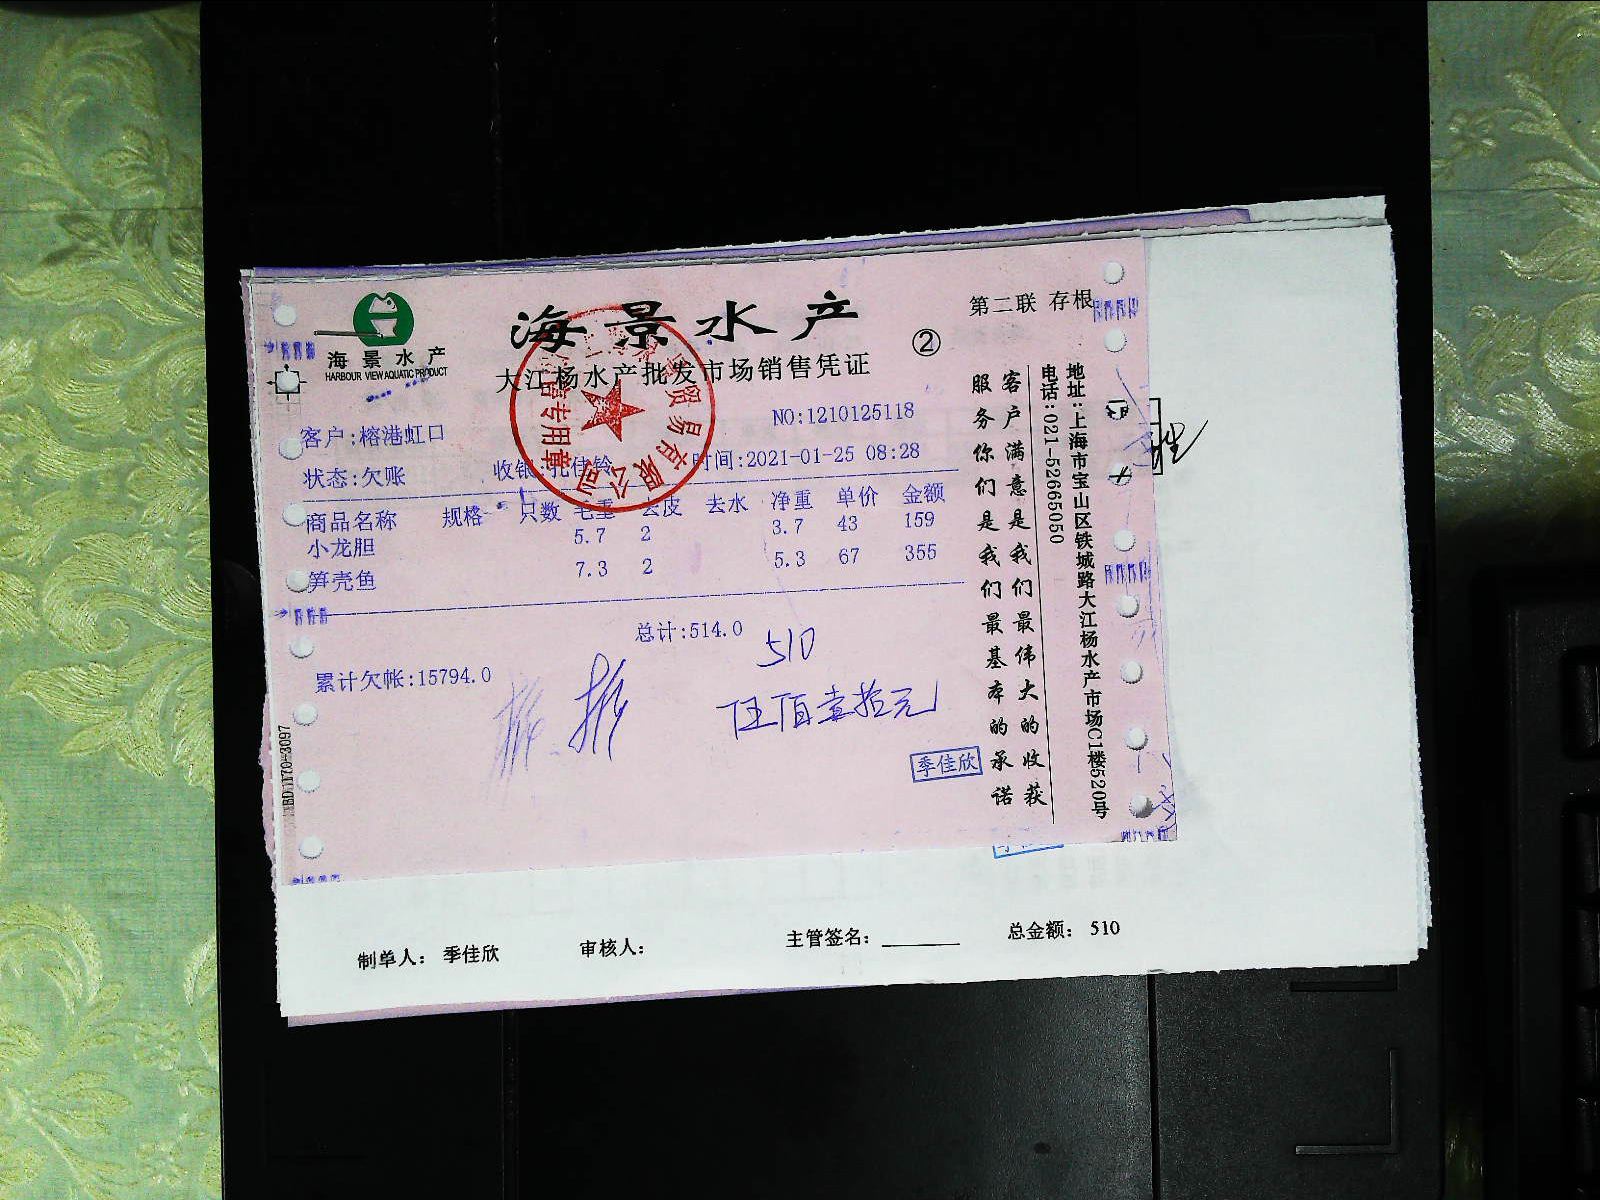 海景水产
HARBOUR VIEW AQUATIC PRODUCT
海景水产
大江杨水产批发市场销售凭证
②
第二联 存根
NO:1210125118
客户:榕港虹口
状态:欠账 收银: 佳铃 时间:2021-01-25 08:28
商品名称 规格 只数 毛重 去皮 去水 净重 单价 金额
小龙胆 5.7 2 3.7 43 159
笋壳鱼 7.3 2 5.3 67 355
总计:514.0
510
累计欠帐:15794.0
伍佰壹拾元
季佳欣
客户满意是我们最伟大的收获
服务你们是我们最基本的承诺
地址:上海市宝山区铁城路大江杨水产市场C1楼520号
电话:021-52665050
贸易有限公司
专用章
制单人: 季佳欣 审核人: 主管签名: 总金额: 510